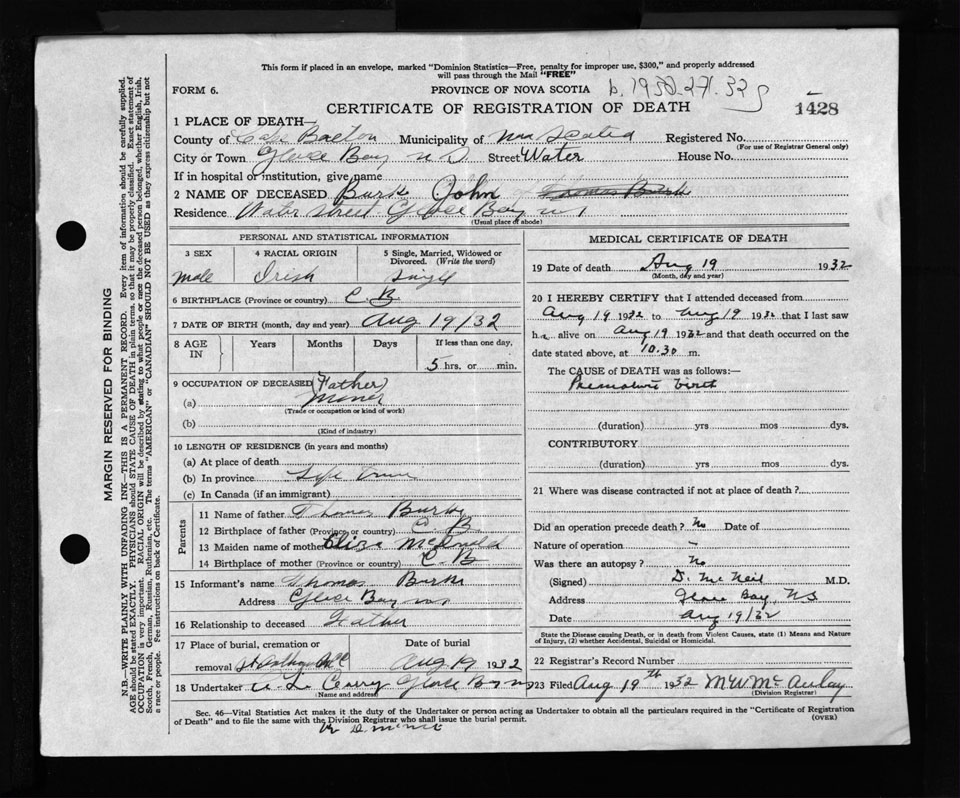 This form if placed in an envelope, marked "Dominion Statistics—Free, penalty for improper use, $300," and properly addressed
will pass through the Mail "FREE"
FORM 6. PROVINCE OF NOVA SCOTIA b. 1932.
CERTIFICATE OF REGISTRATION OF DEATH 1428
1 PLACE OF DEATH—
County of Cape Breton Municipality of Nova Scotia Registered No.
(For use of Registrar General only)
City or Town Glace Bay N S Street Water House No.
If in hospital or institution, give name
2 NAME OF DECEASED Burke John of Thomas Burke
Residence Water Street Glace Bay
(Usual place of abode)
PERSONAL AND STATISTICAL INFORMATION
3 SEX 4 RACIAL ORIGIN 5 Single, Married, Widowed or
Divorced. (Write the word)
Male Irish Single
6 BIRTHPLACE (Province or country) C B
7 DATE OF BIRTH (month, day and year) Aug 19/32
8 AGE IN Years Months Days If less than one day,
5 hrs. or min.
9 OCCUPATION OF DECEASED Father
(a) Miner
(Trade or occupation or kind of work)
(b)
(Kind of industry)
10 LENGTH OF RESIDENCE (in years and months)
(a) At place of death
(b) In province Life time
(c) In Canada (if an immigrant)
Parents
11 Name of father Thomas Burke
12 Birthplace of father (Province or country) C. B
13 Maiden name of mother Eliza McDonald
14 Birthplace of mother (Province or country) C. B
15 Informant's name Thomas Burke
Address Glace Bay NS
16 Relationship to deceased Father
17 Place of burial, cremation or Date of burial
removal St Anthony Aug 19 1932
18 Undertaker Curry Glace Bay NS
(Name and address)
MEDICAL CERTIFICATE OF DEATH
19 Date of death Aug 19 1932
(Month, day and year)
20 I HEREBY CERTIFY that I attended deceased from
Aug 19 1932 to Aug 19 1932 that I last saw
h alive on Aug 19 1932 and that death occurred on
date stated above, at 10.30 m.
The CAUSE of DEATH was as follows:—
Premature birth
(duration) yrs mos dys.
CONTRIBUTORY
(duration) yrs mos dys.
21 Where was disease contracted if not at place of death?
Did an operation precede death? No Date of
Nature of operation —
Was there an autopsy? No
(Signed) D. McNeil M.D.
Address Glace Bay, NS
Date Aug 19/32
State the Disease causing Death, or in death from Violent Causes, state (1) Means and Nature
of Injury, (2) whether Accidental, Suicidal or Homicidal.
22 Registrar's Record Number
23 Filed Aug 19th 1932 M W McAulay
(Division Registrar)
Sec. 46—Vital Statistics Act makes it the duty of the Undertaker or person acting as Undertaker to obtain all the particulars required in the "Certificate of Registration
of Death" and to file the same with the Division Registrar who shall issue the burial permit. (OVER)
MARGIN RESERVED FOR BINDING
N.B.—WRITE PLAINLY WITH UNFADING INK—THIS IS A PERMANENT RECORD. Every item of information should be carefully supplied.
AGE should be stated EXACTLY. PHYSICIANS should STATE CAUSE OF DEATH in plain terms, so that it may be properly classified. Exact statement of
OCCUPATION is very important. RACIAL ORIGIN will be described by stating to what people or race the deceased person belonged, whether English, Irish,
Scotch, French, German, Russian, Ruthenian, etc. The terms "AMERICAN" or "CANADIAN" SHOULD NOT BE USED as they express citizenship but not
a race or people. See instructions on back of Certificate.